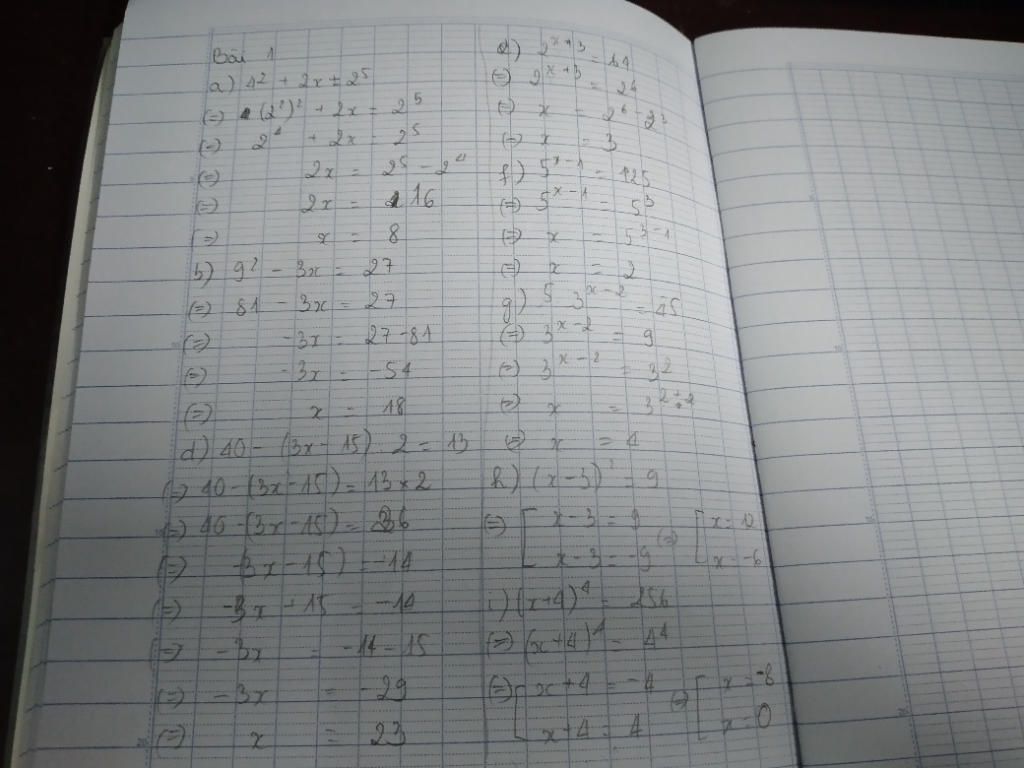 Bài 1
a) 4² + 2x = 2⁵
(=) (2²)² + 2x = 2⁵
(=) 2⁴ + 2x = 2⁵
(=) 2x = 2⁵ - 2⁴
(=) 2x = 16
(=) x = 8
b) 9² - 3x = 27
(=) 81 - 3x = 27
(=) -3x = 27-81
(=) -3x = -54
(=) x = 18
d) 40 - (3x - 15) : 2 = 13
(=) 40 - (3x - 15) = 13 × 2
(=) 40 - (3x - 15) = 26
(=) -3x - 15) = -14
(=) -3x + 15 = -14
(=) -3x = -14 - 15
(=) -3x = -29
(=) x = 23
e) 2ˣ⁺³ = 64
(=) 2ˣ⁺³ = 2⁶
(=) x = 2⁶ - 2³
(=) x = 3
f) 5ˣ⁻¹ = 125
(=) 5ˣ⁻¹ = 5³
(=) x = 5³⁻¹
(=) x = 2
g) 5 3ˣ⁻² = 45
(=) 3ˣ⁻² = 9
(=) 3ˣ⁻² = 3²
(=) x = 3²⁺²
(=) x = 4
h) (x - 3)² = 9
(=) [ x - 3 = 9 (=) [ x = 12
x - 3 = -9 x = -6
i) (x+4)⁴ = 256
(=) (x+4)⁴ = 4⁴
(=) [ x+4 = -4 (=) [ x = -8
x+4 = 4 x = 0